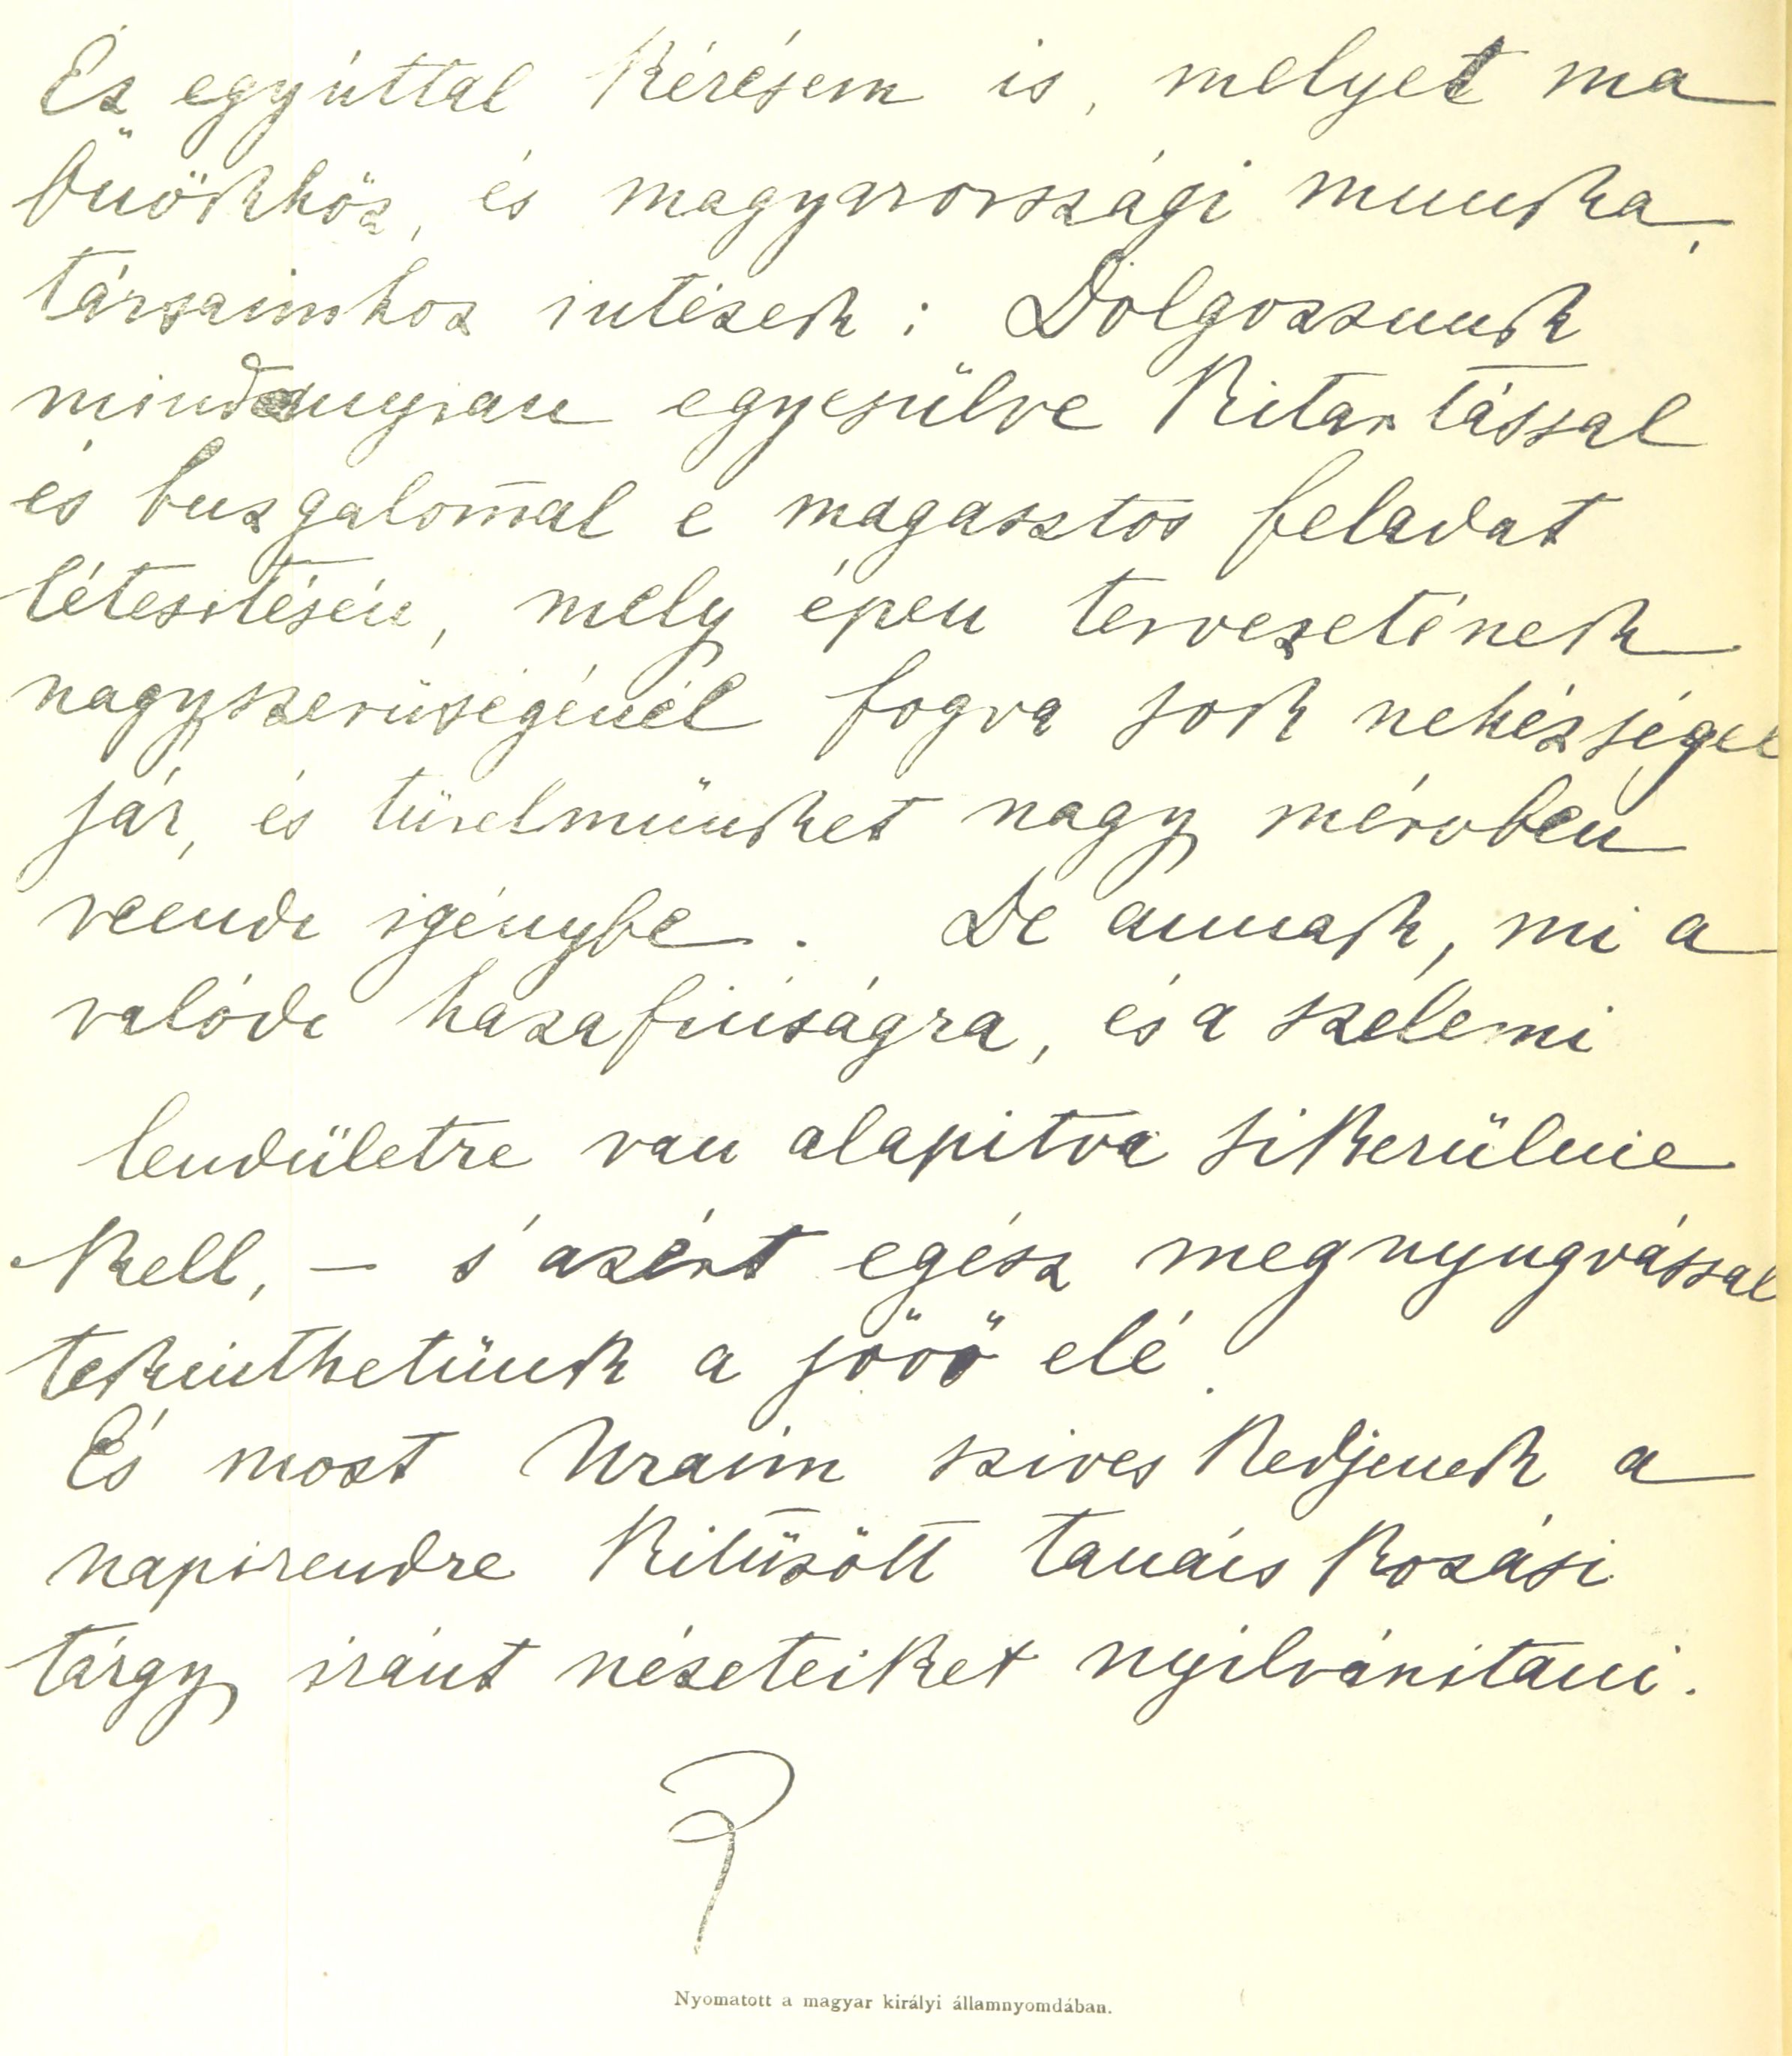 Ez egyúttal kérésem is, melyet ma
Önökhöz, és magyarországi munka,
társaimhoz intézek : Dolgozzunk
mindannyian egyesülve kitartással
és buzgalommal e magasztos feladat
létesítésén, mely épen tervezetének
nagyszerüségénél fogva sok nehézségel
jár, és türelmünket nagy mérvben
veendi igénybe. De annak, mi a
valódi hazafiúságra, és a szelemi
lendületre van alapitva sikerülnie
kell, – s' azért egész megnyugvással
tekinthetünk a jövő elé.
És most Uraim sziveskedjenek a
napirendre kitüzött tanácskozási
tárgy iránt nézeteiket nyilvánitani.
R
Nyomatott a magyar királyi államnyomdában.